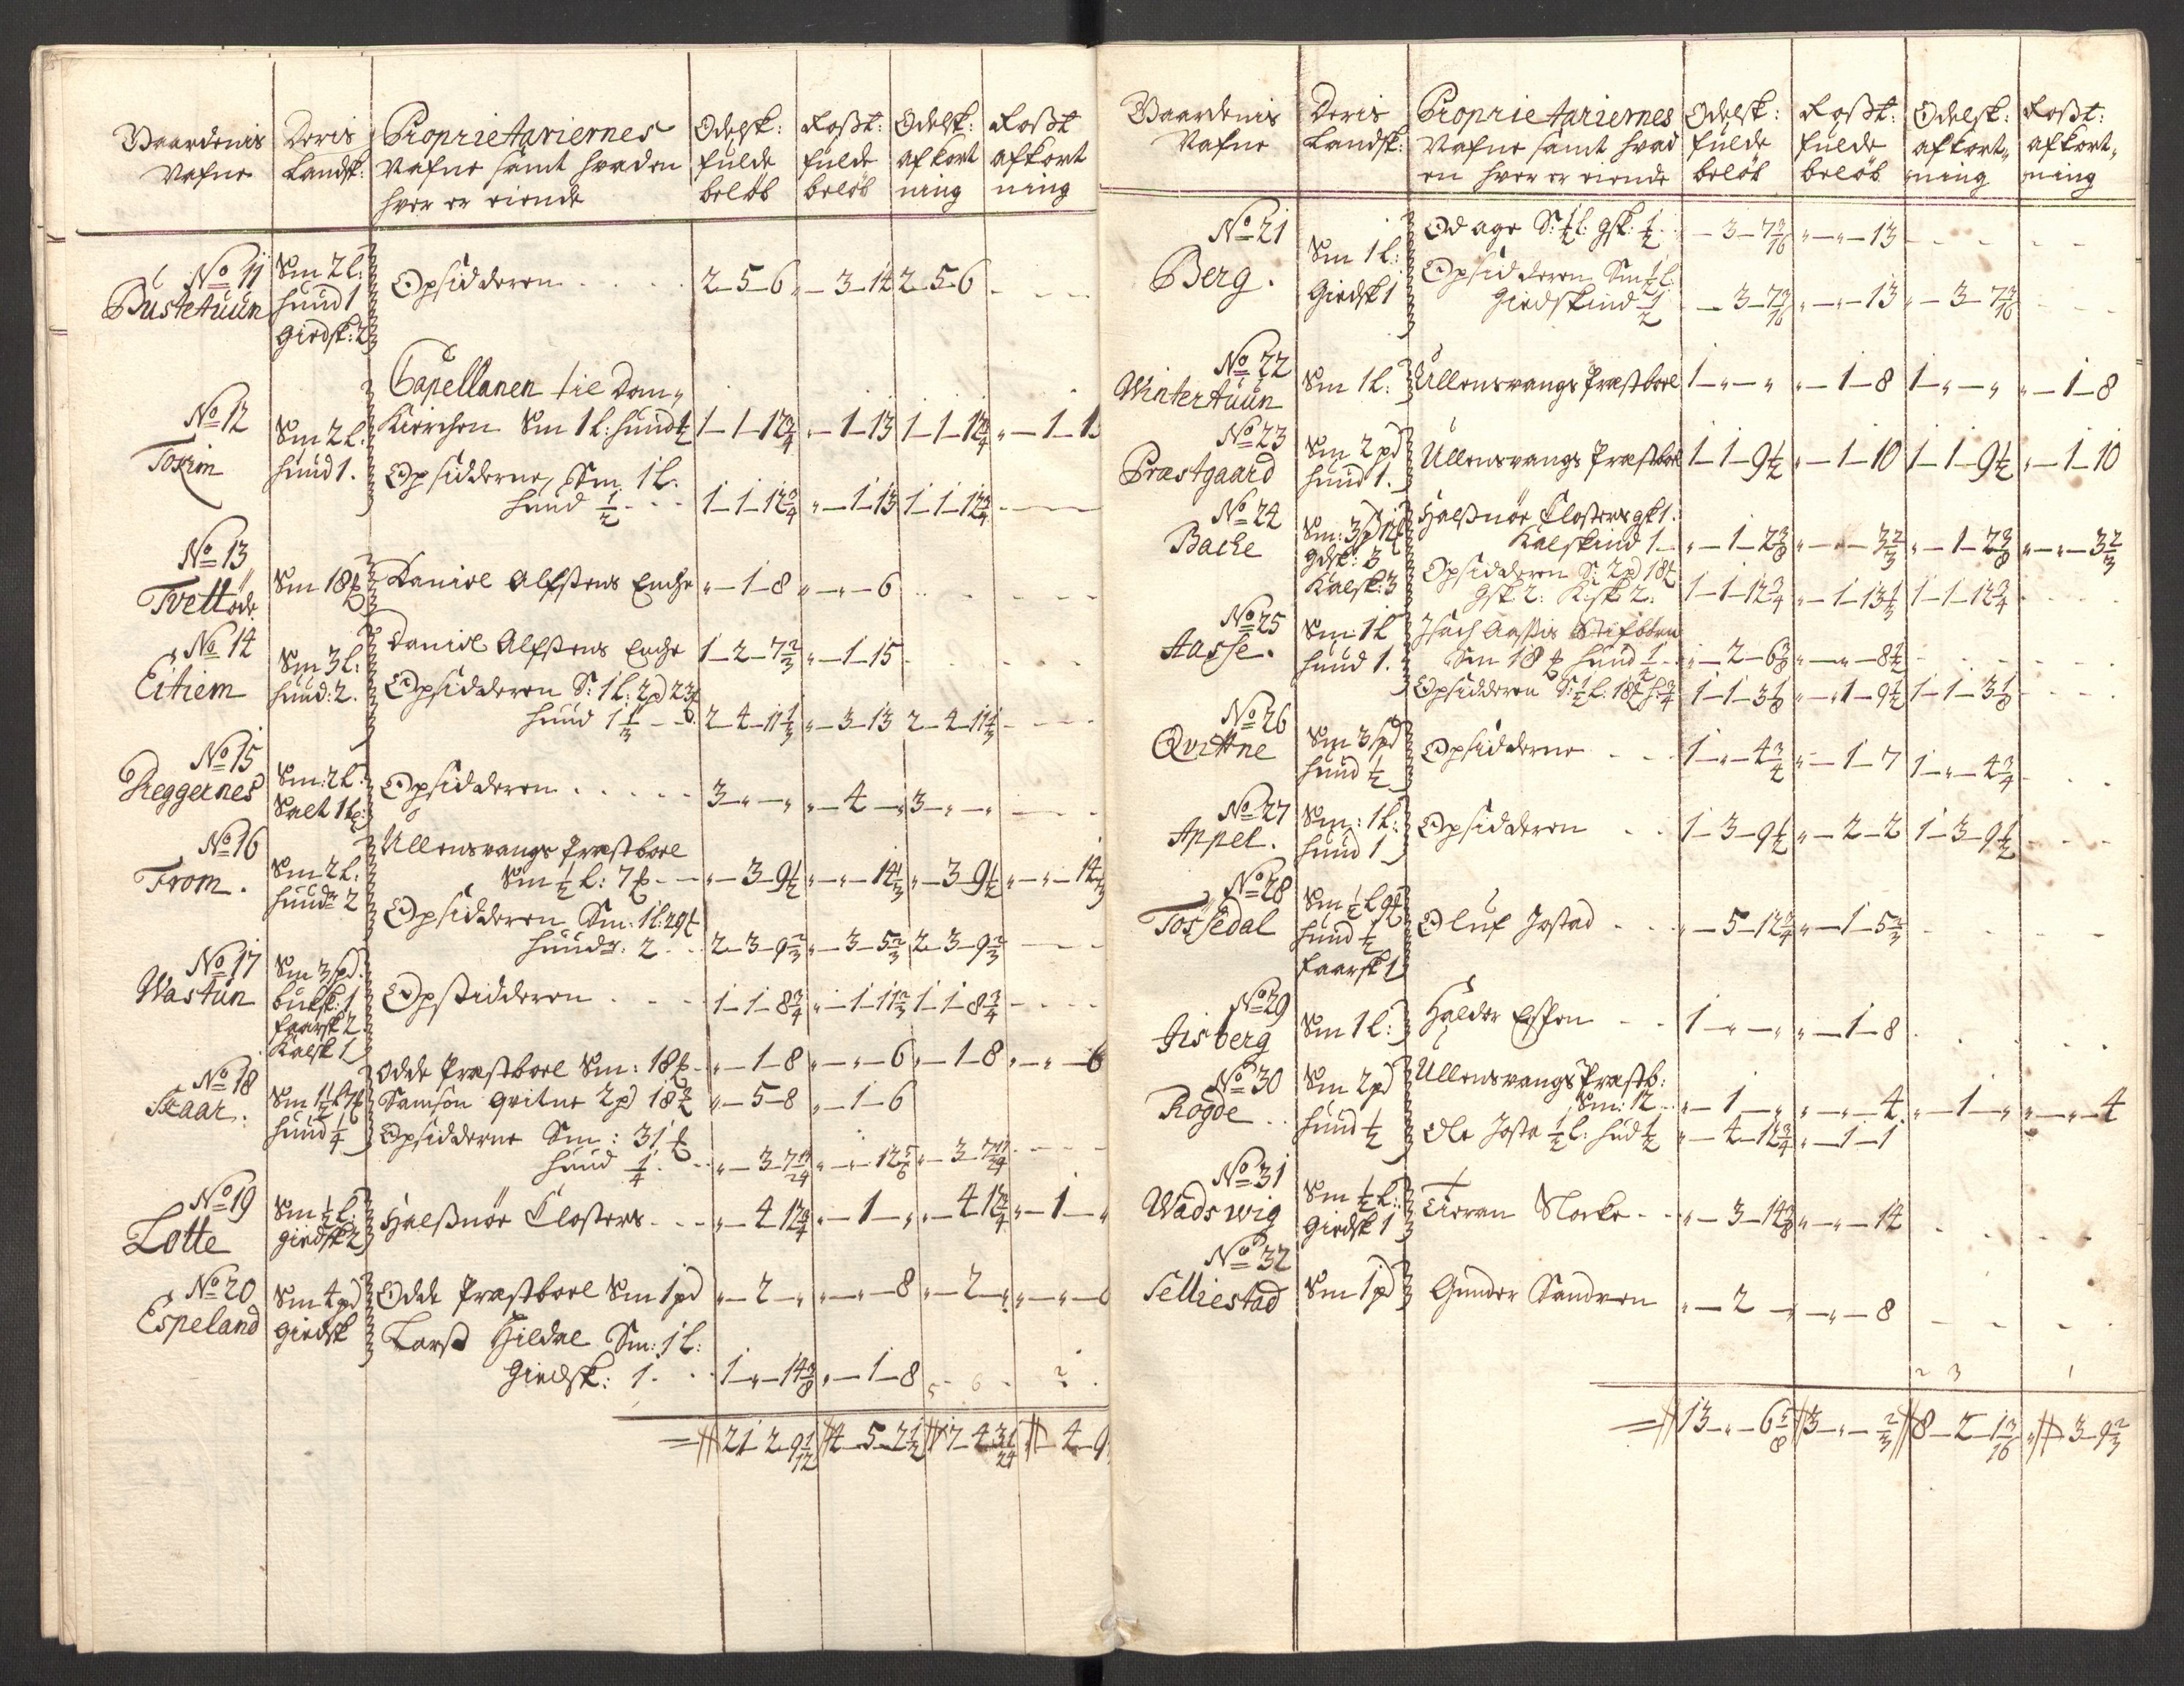 Gaardenis Nafne | Deris Landsk: | Proprietariernes Nafne samt hvad en hver er eiende | Odelsk: fulde beløb | Roßt: fulde beløb | Odelsk: afkort ning | Roßt afkort ning
No 11 Bustetuun | Sm 2 l: huud 1 giedsk: 2 | Opsidderen | 2-5-6 | "-3-14 | 2-5-6
No 12 Tokrim | Sm 2 l: huud 1. | Capellanen til Dom,
Kierchen Sm 1 l: huud ½ | 1-1-12¾ | "-1-13 | 1-1-12¾ | "-1-13
Opsidderne, Sm 1 l:
huud ½ | 1-1-12¾ | "-1-13 | 1-1-12¾
No 13 Tvettöde | Sm 18 | Daniel Alfsens Enche | "-1-8 | "-"-6
No 14 Eitiem | Sm 3 l: huud: 2. | Daniel Alfsens Enche | 1-2-7⅔ | "-1-15
Opsidderen S: 1 l: 2 pd 23
huud 1⅓ | 2-4-11⅓ | "-3-13 | 2-4-11⅓
No 15 | Sm: 2 l: Salt 1 | Opsidderen | 3-"-" | "-4-" | 3-"-"
No 16 From. | Sm 2 l: huudr 2 | Ullensvangs Præstboel
Sm ½ l: 7 | "-3-9½ | "-"-14⅓ | "-3-9½ | "-"-14⅓
Opsidderen Sm: 1 l: 29
huudr: 2 | 2-3-9⅔ | "-3-5⅔ | 2-3-9⅔
No 17 Wastun | Sm 3 spd. buksk: 1 faarsk 2 Kalfsk 1 | Opsidderen | 1-1-8¾ | "-1-11⅔ | 1-1-8¾
No 18 Skaar. | Sm 1½ l 7 huud ¼ | Odde Præstboel Sm: 18 | "-1-8 | "-"-6 | "-1-8 | "-"-6
Samson qvitne 2 pd 18 | "-5-8 | "-1-6
Opsidderne Sm: 31
huud ¼ | "-3-7 17/24 | "-"-12⅚ | "-3-7 17/24
No 19 Lotte | Sm ½ l: giedsk 2 | Halsnöe Closters | "-4-12¾ | "-1-" | "-4-12¾ | "-1-"
No 20 Espeland | Sm 4 pd giedsk | Odde Præstboel Sm 1 pd | "-2-" | "-"-8 | "-2-" | "-"-8
Larss Hildal Sm: 1 l:
Giedsk: 1 | 1-"-14⅜ | "-1-8
21-2-9 1/12 | 4-5-2½ | 17-4-31/24 | "-4-9
Gaardenis Nafne | Deris Landsk: | Proprietariernes Nafne samt hvad en hver er eiende | Odelsk: fulde beløb | Roßt: fulde beløb | Odelsk: afkort, ning | Roßt: afkort, ning
No 21 Berg. | Sm 1 l: Giedsk 1 | Od age S: ½ l: gsk: ½ | "-3-7 3/16 | "-"-13
Opsidderen Sm ½ l:
Giedskind ½ | "-3-7 3/16 | "-"-13 | "-3-7 3/16
No 22 Wintertuun | Sm 1 l: | Ullensvangs Præstboel | 1-"-" | "-1-8 | 1-"-" | "-1-8
No 23 Præstgaard | Sm 2 pd huud 1. | Ullensvangs Præstboel | 1-1-9½ | "-1-10 | 1-1-9½ | "-1-10
No 24 Bache | Sm: 3 gdsk: 3 Kalfsk: 3 | Halsnöe Closters gsk 1.
Kalfskind 1 | "-1-2⅜ | "-"-3⅔ | "-1-2⅜ | "-"-3⅔
Opsidderen S: 2 pd 18
gsk 2: K:sk: 2. | 1-1-12¾ | "-1-13⅓ | 1-1-12¾
No 25 Aasse. | Sm: 1 l huud 1. |
Sm 18 huud ½ | "-2-6⅜ | "-"-8½
Opsidderen S: ½ l: 18 h: ¾ | 1-1-3⅛ | "-1-9½ | 1-1-3⅛
No 26 Qvittne | Sm 3 spd huud ½ | Opsidderne | 1-"-4¾ | "-1-7 | 1-"-4¾
No 27 Appel. | Sm: 1 l: huud 1 | Opsidderen | 1-3-9½ | "-2-2 | 1-3-9½
No 28 Tössedal | Sm ½ l 9 huud ½ faarsk 1 | Oluf Jostad | "-5-12¾ | "-1-5⅔
No 29 Aisberg | Sm 1 l: | Halder Espen | 1-"-" | "-1-8
No 30 Rogde | Sm 2 pd huud ½ | Ullensvangs Præstb:
Sm: 12 | "-1-" | "-"-4 | "-1-" | "-"-4
Ole Josta ½ l: hud ½ | "-4-12¾ | "-1-1
No 31 Wadswig | Sm ½ l: giedsk 1 | "-3-14⅜ | "-"-14
No 32 Selliestad | Sm 1 pd | Gunder Sandven | "-2-" | "-"-8
13-"-6⅝ | 3-"-⅔ | 8-2-1 3/16 | "-3-9⅔